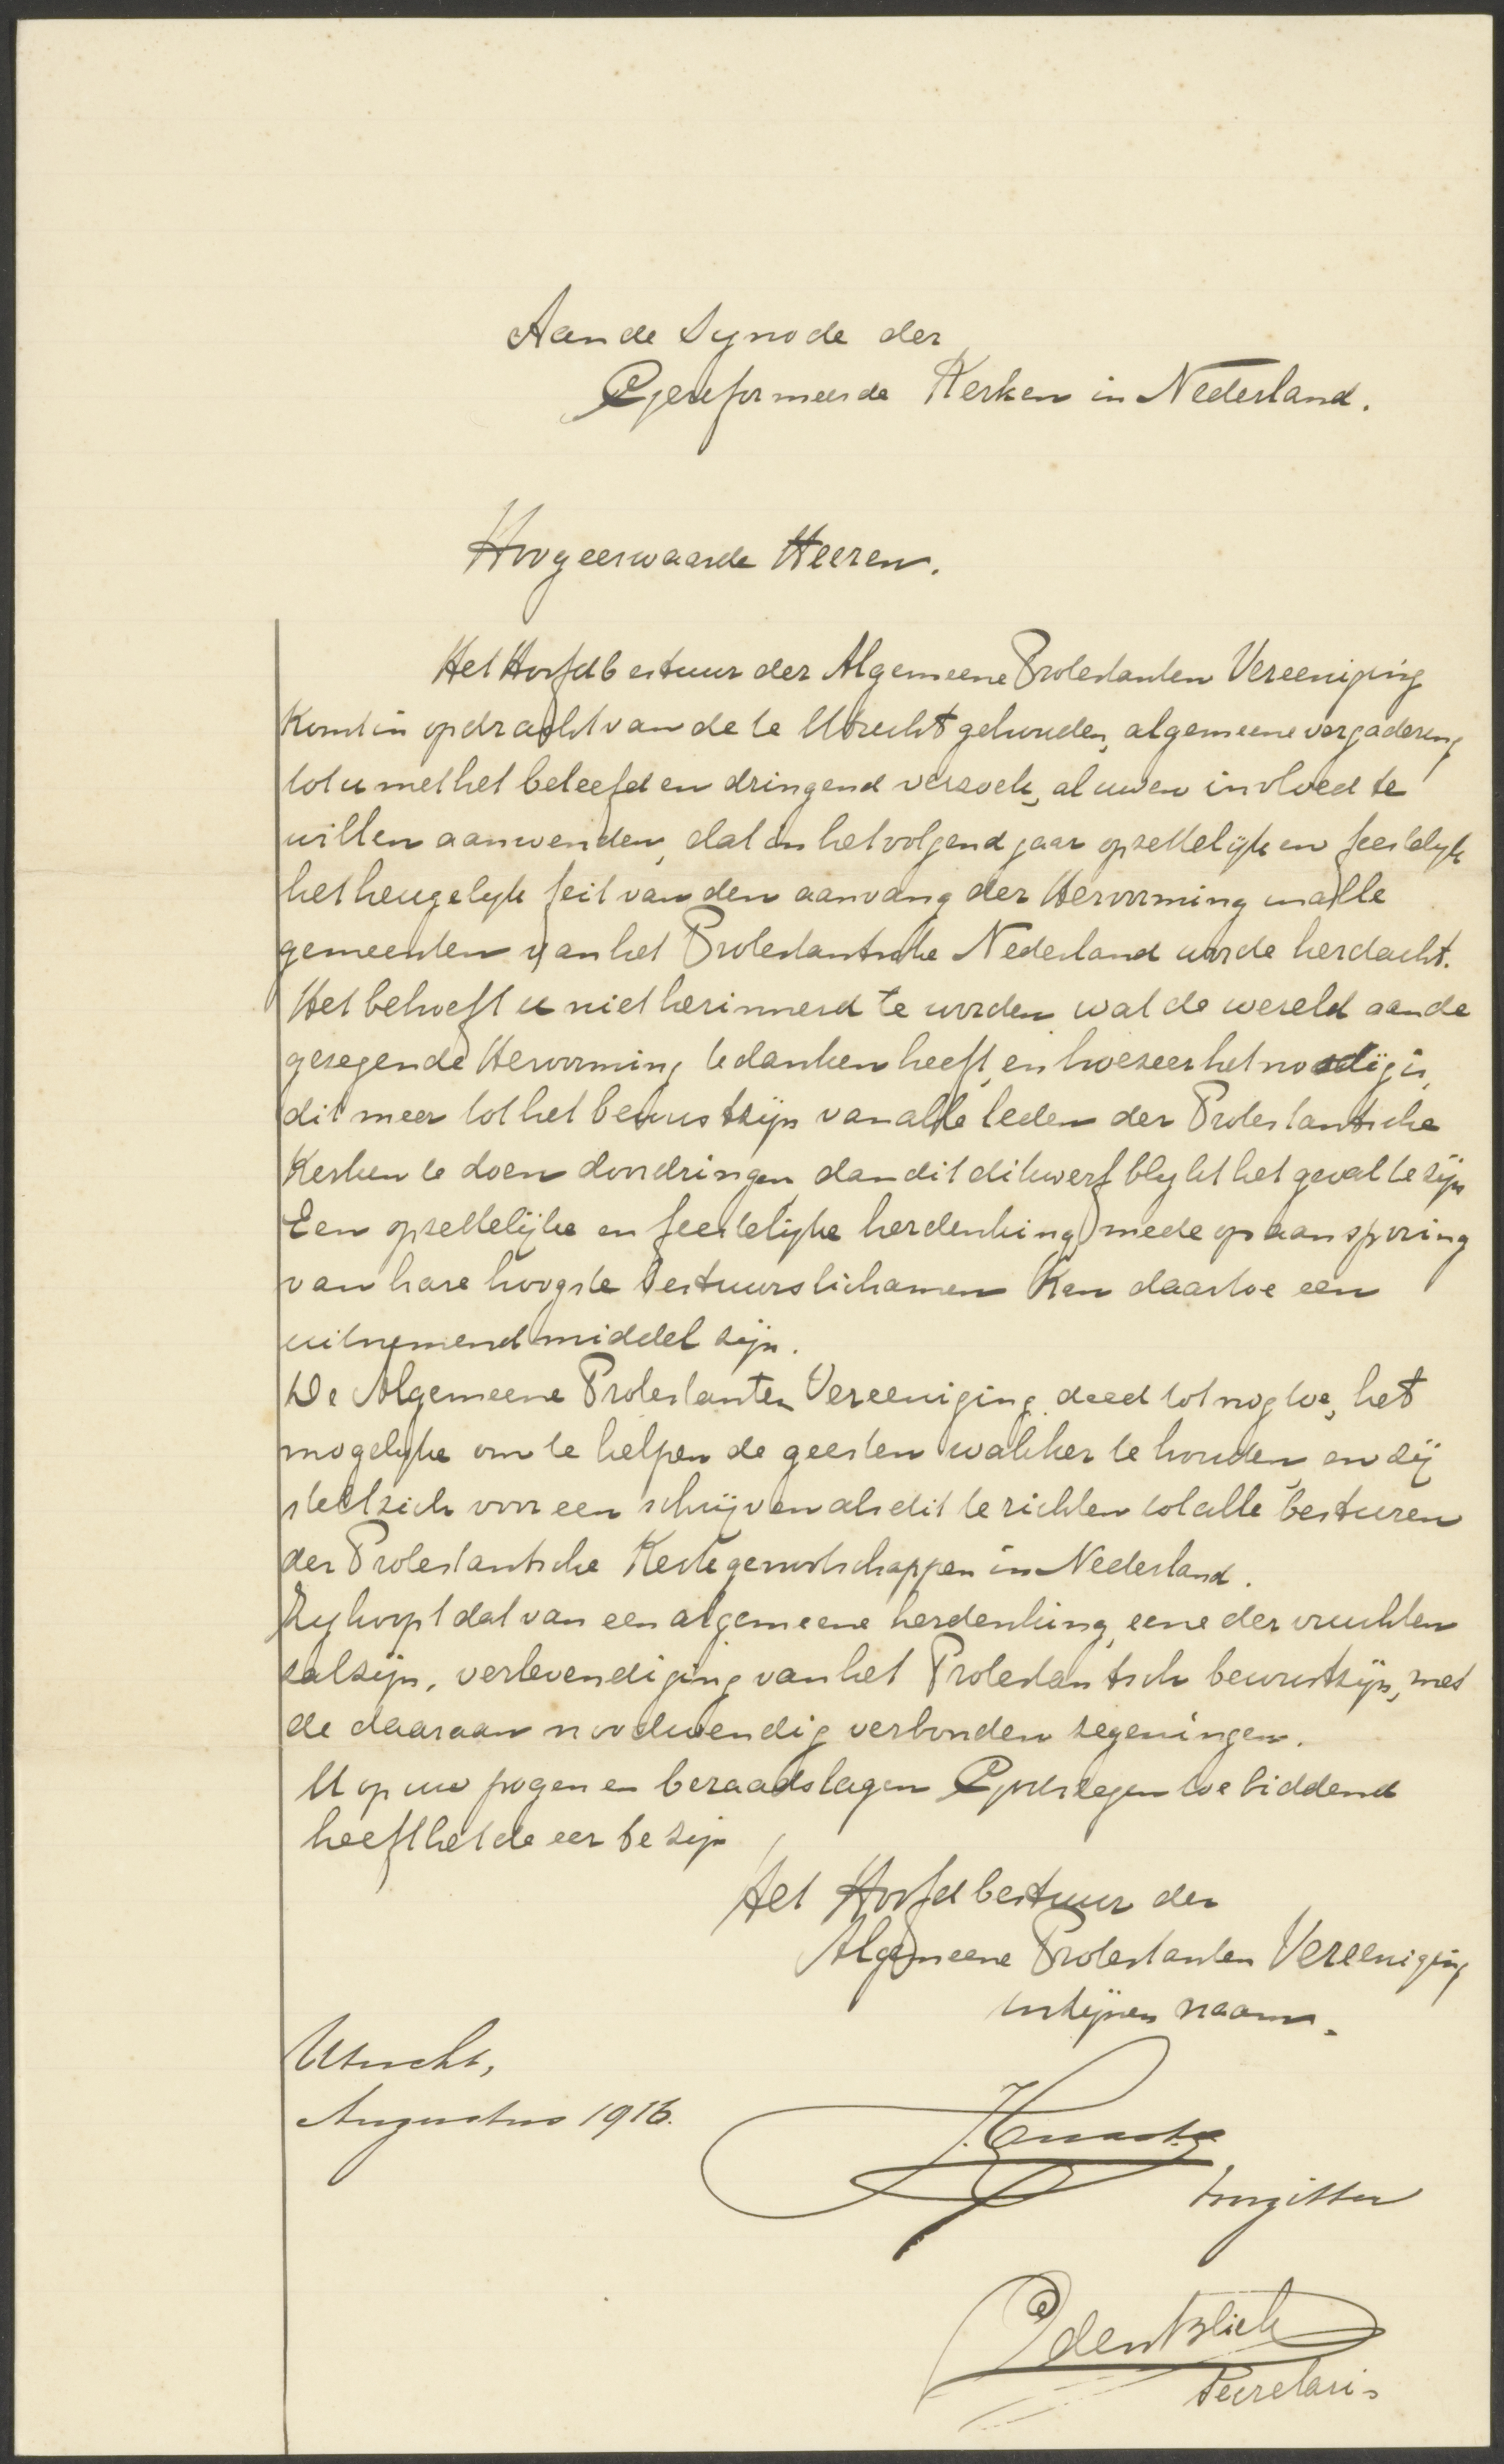 Aan de Synode der
Gereformeerde Kerken in Nederland.
Hoogeerwaarde Heeren.
Het Hoofdbestuur der Algemeene Protestanten Vereeniging
komt in opdracht van de te Utrecht gehouden, algemeene vergadering
tot u met het beleefd en dringend verzoek, al uwen invloed te
willen aanwenden, dat in het volgend jaar opzettelijk en feestelijk
het heugelijk feit van den aanvang der Hervorming in alle
gemeenten van het Protestantsche Nederland worde herdacht.
Het behoeft u niet herinnerd te worden wat de wereld aan de
gezegende Hervorming te danken heeft, en hoezeer het noodig is,
dit meer tot het bewustzijn van alle leden der Protestantsche
Kerken te doen doordringen, dan dit dikwerf blijkt het geval te zijn
Een opzettelijke en feestelijke herdenking mede op aansporing
van hare hoogste bestuurslichamen kan daartoe een
uitnemend middel zijn.
De Algemeene Protestanten Vereeniging deed tot nog toe, het
mogelijke om te helpen de geesten wakker te houden, en zij
stelt zich voor een schrijven als dit te richten tot alle besturen
der Protestantsche Kerkgenootschappen in Nederland.
Zij hoopt dat van een algemeene herdenking, eene der vruchten
zal zijn, verlevendiging van het Protestantsch bewustzijn, met
de daaraan noodwendig verbonden zegeningen.
U op uw pogen en beraadslagen Gods zegen toe biddend
heeft het de eer te zijn
Het Hoofdbestuur der
Algemeene Protestanten Vereeniging
in zijnen naam.
Utrecht,
Augustus 1916.
Voorzitter
Secretaris